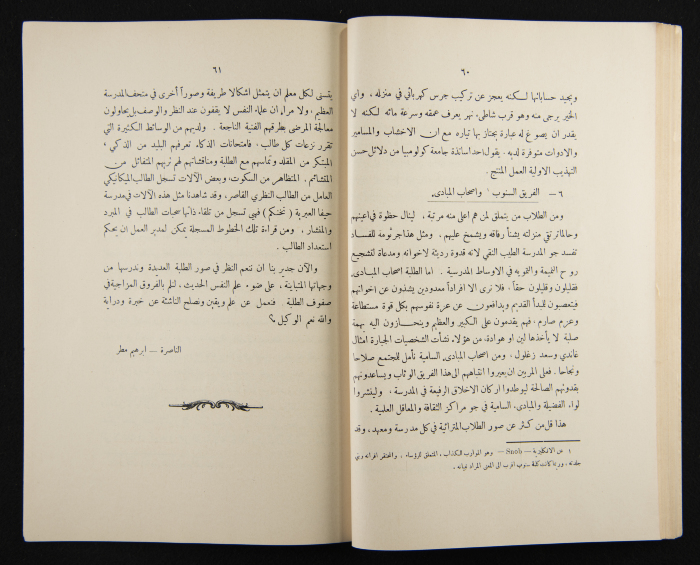 ٦٠
ويجيد حساباتها لكنه يعجز عن تركيب جرس كهربائي في منزله ، واي
الخير يرجى منه وهو قرب شاطئ نهر يعرف عمقه وسرعة مائه لكنه لا
يقدر ان يصوغ له عبارة يجتاز بها تياره مع ان الاخشاب والمسامير
والادوات متوفرة لديه . يقول احد اساتذة جامعة كولومبيا من دلائل حسن
التهذيب الاولية العمل المنتج .
٦ – الفريق السنوب ١ واصحاب المبادئ.
ومن الطلاب من يتملق لمن هم اعلى منه مرتبة ، لينال حظوة في اعينهم
وحالما ترتقي منزلته يشنأ رفاقه ويشمخ عليهم . ومثل هذا جرثومة للفساد
تفسد جو المدرسة الطيب النقي لانه قدوة رديئة لاخوانه ومدعاة لتشجيع
روح النميمة والتمويه في الاوساط المدرسية . اما الطلبة اصحاب المبادئ
فقليلون وقليلون حقاً ، فلا ترى الا افراداً معدودين يشذون عن اخوانهم
فيتعصبون للمبدأ القديم ويدافعون عن عزة نفوسهم بكل قوة مستطاعة
وعزم صارم ، فهم يقدمون على الكبير والعظيم وينحازون اليه بهمة
صلبة لا يأخذها لين او هوادة، من هؤلاء نشأت الشخصيات الجبارة امثال
غاندي وسعد زغلول ، ومن اصحاب المبادئ السامية نأمل للمجتمع صلاحا
ونجاحا . فعلى المربين ان يعيروا انتباههم الى هذا الفريق الوثاب ويساعدونهم
بقدوتهم الصالحة ليوطدوا اركان الاخلاق الرفيعة في المدرسة ، ولينشروا
لواء الفضيلة والمبادئ السامية في جو مراكز الثقافة والمعاقل العلمية .
هذا قل من كثر عن صور الطلاب المترائية في كل مدرسة ومعهد ، وقد
١ عن الانكليزية – Snob – وهو الموارب الكذاب ، المتملق للرؤساء ، والمحتقر اقرانه وبني
جلدته . وربما كانت كلمة سنوب اقرب الى المعنى المراد تبيانه .
٦١
يتسنى لكل معلم ان يتمثل اشكالا طريفة وصوراً أخرى في متحف المدرسة
العظيم ، ولا مراء ان علماء النفس لا يقفون عند النظر والوصف بل يحاولون
معالجة المرضى بطرقهم الفنية الناجعة . ولديهم من الوسائط الكثيرة التي
تقرر نزعات كل طالب ، فامتحانات الذكاء تعرفهم البليد من الذكي ،
المبتكر من المقلد وتماسهم مع الطلبة ومناقشاتهم لهم تريهم المتفائل من
المتشائم ، المتظاهر من السكوت ، وبعض الآلات تسجل الطالب الميكانيكي
العامل من الطالب النظري القاصر ، وقد شاهدنا مثل هذه الآلات في مدرسة
حيفا العبرية ( تخنكم ) فهي تسجل من تلقاء ذاتها سحبات الطالب في المبرد
والمنشار . ومن قراءة تلك الخطوط المسجلة يمكن لمدير العمل ان يحكم
استعداد الطالب .
والآن جدير بنا ان ننعم النظر في صور الطلبة العديدة وندرسها من
وجهاتها المتباينة ، على ضوء علم النفس الحديث ، لنلم بالفروق المزاجية في
صفوف الطلبة . فنعمل عن علم ويقين ونصلح الناشئة عن خبرة ودراية
والله نعم الوكيل ؟
الناصرة – ابراهيم مطر